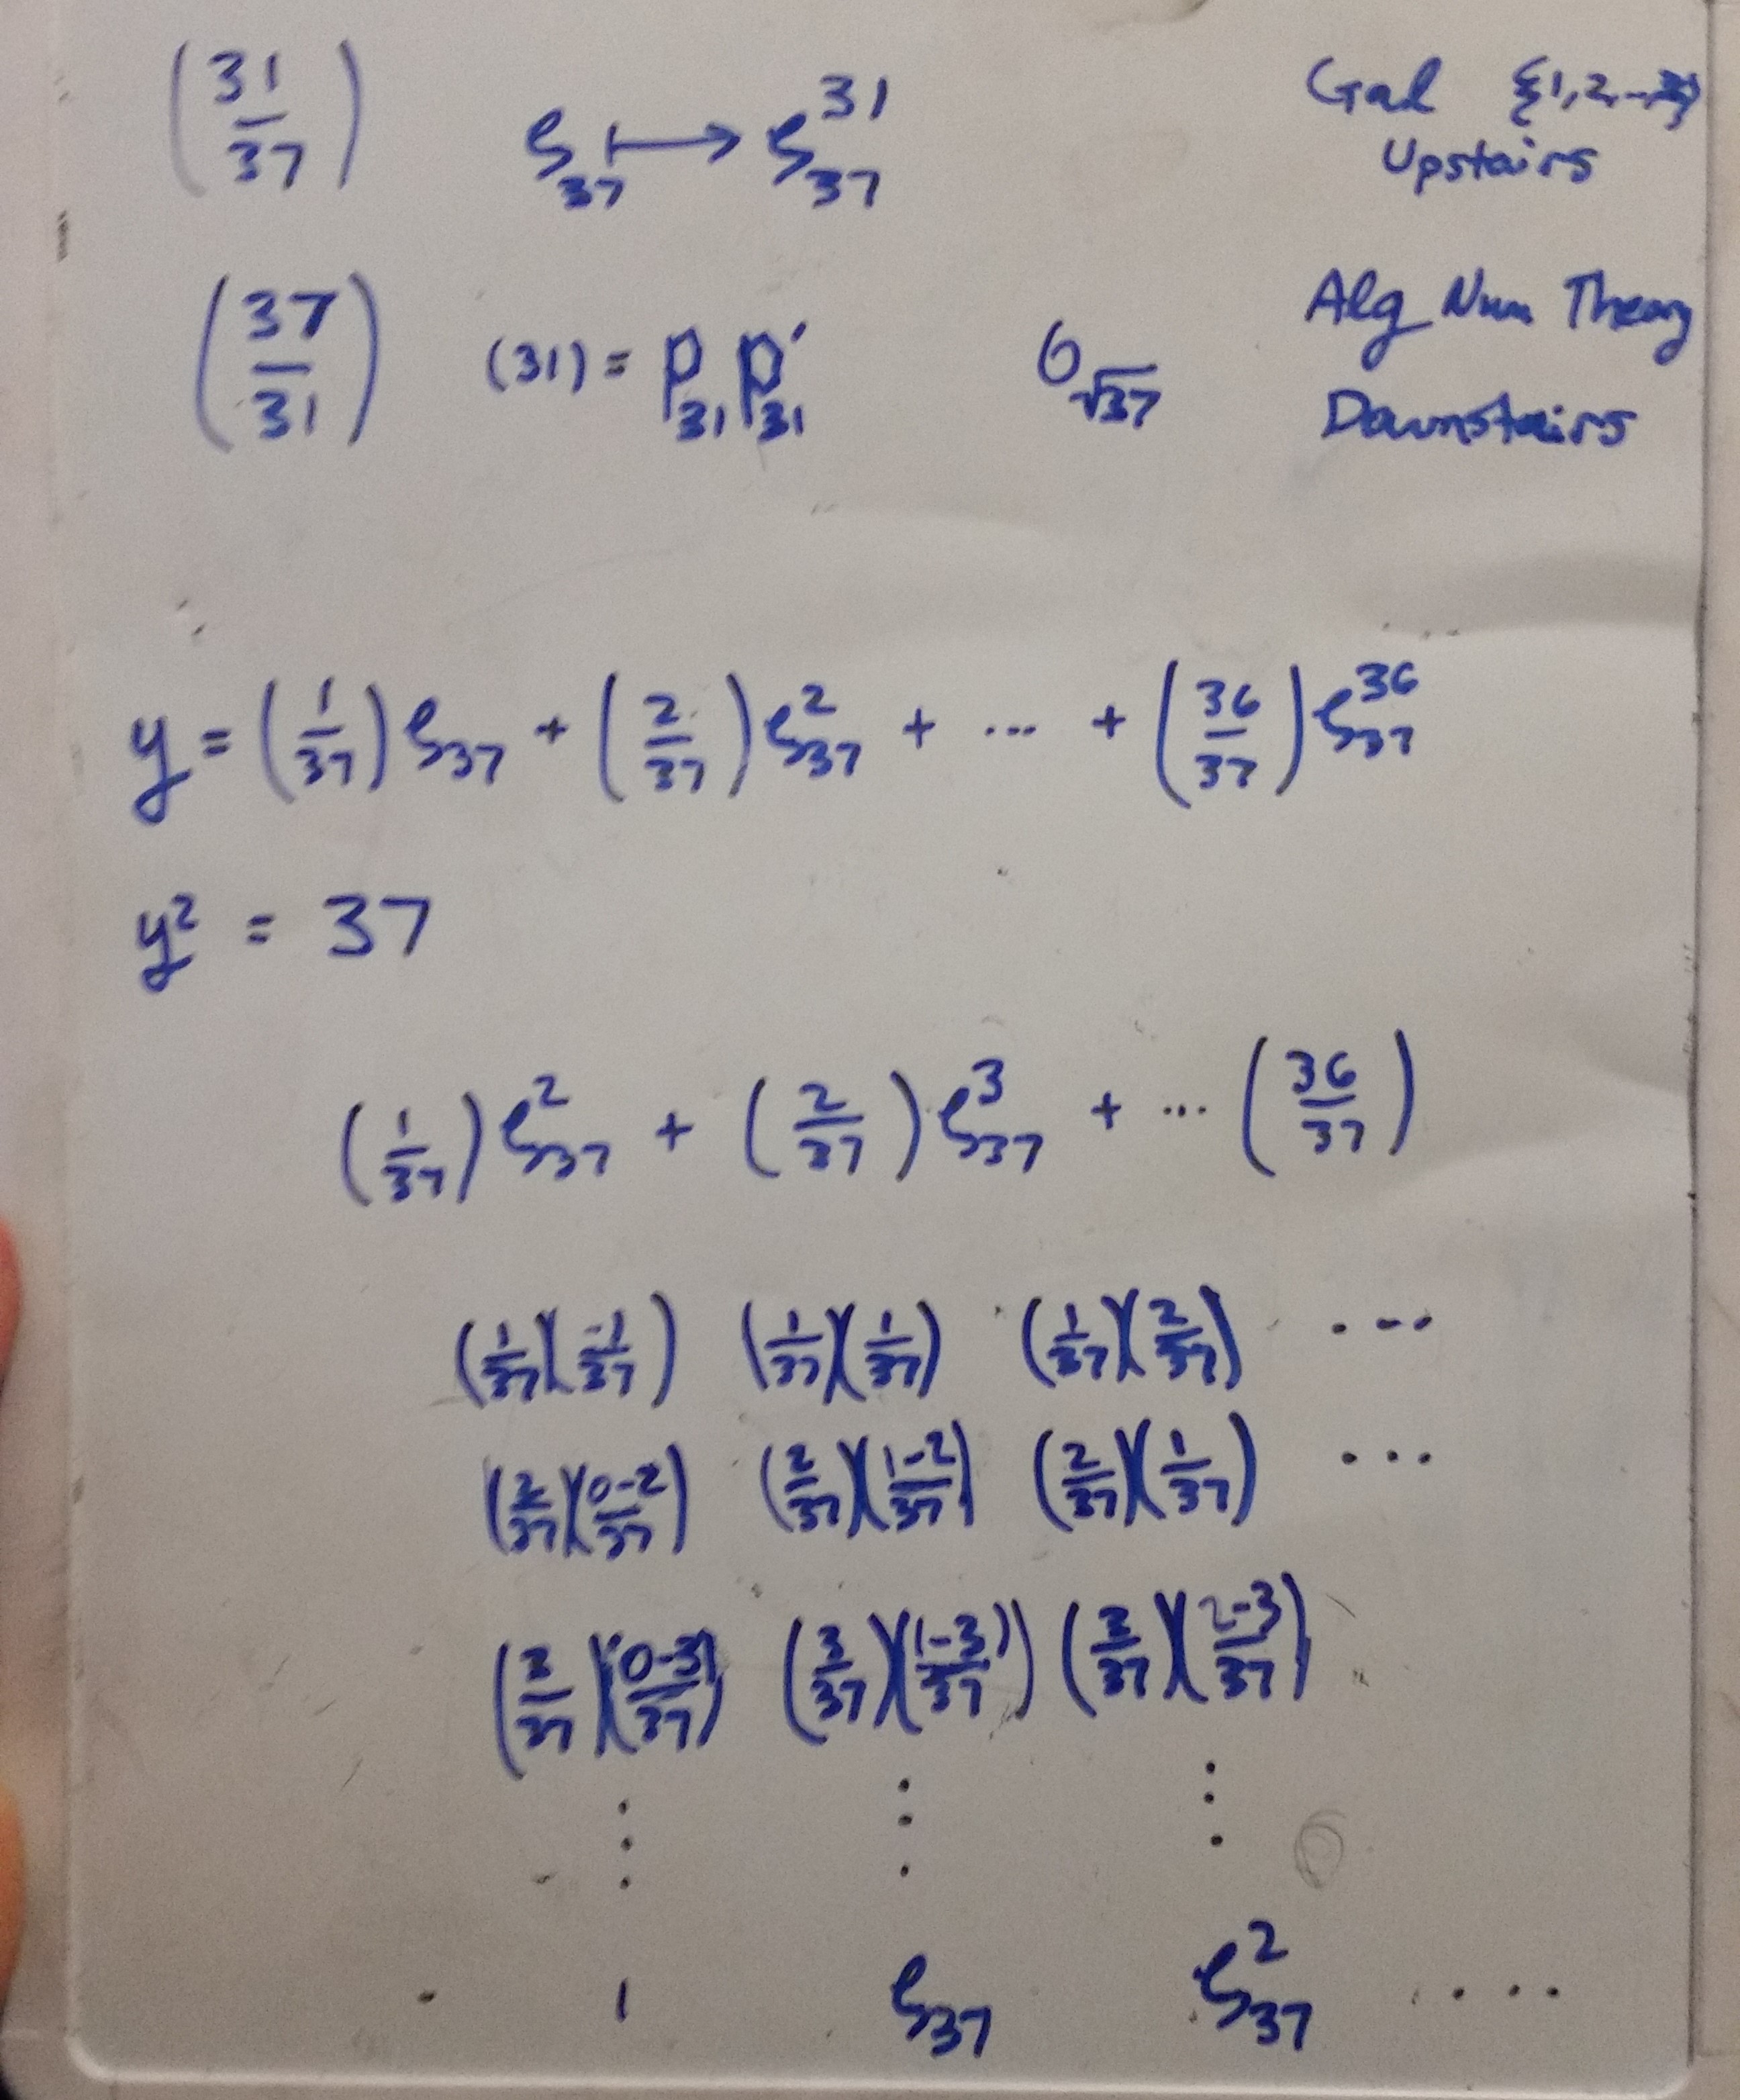 (31/37) ζ₃₇ ↦ ζ₃₇³¹ Gal {1,2,..,
Upstairs
(37/31) (31) = p₃₁ p′₃₁ σ_√37 Alg Num Theory
Downstairs
y = (1/37) ζ₃₇ + (2/37) ζ₃₇² + ... + (36/37) ζ₃₇³⁶
y² = 37
(1/37) ζ₃₇² + (2/37) ζ₃₇³ + ... (36/37)
(1/37)(-1/37) (1/37)(1/37) (1/37)(2/37) ...
(2/37)(0-2/37) (2/37)(1-2/37) (2/37)(1/37) ...
(3/37)(0-3/37) (3/37)(1-3/37) (3/37)(2-3/37)
⋮ ⋮ ⋮
1 ζ₃₇ ζ₃₇² ....